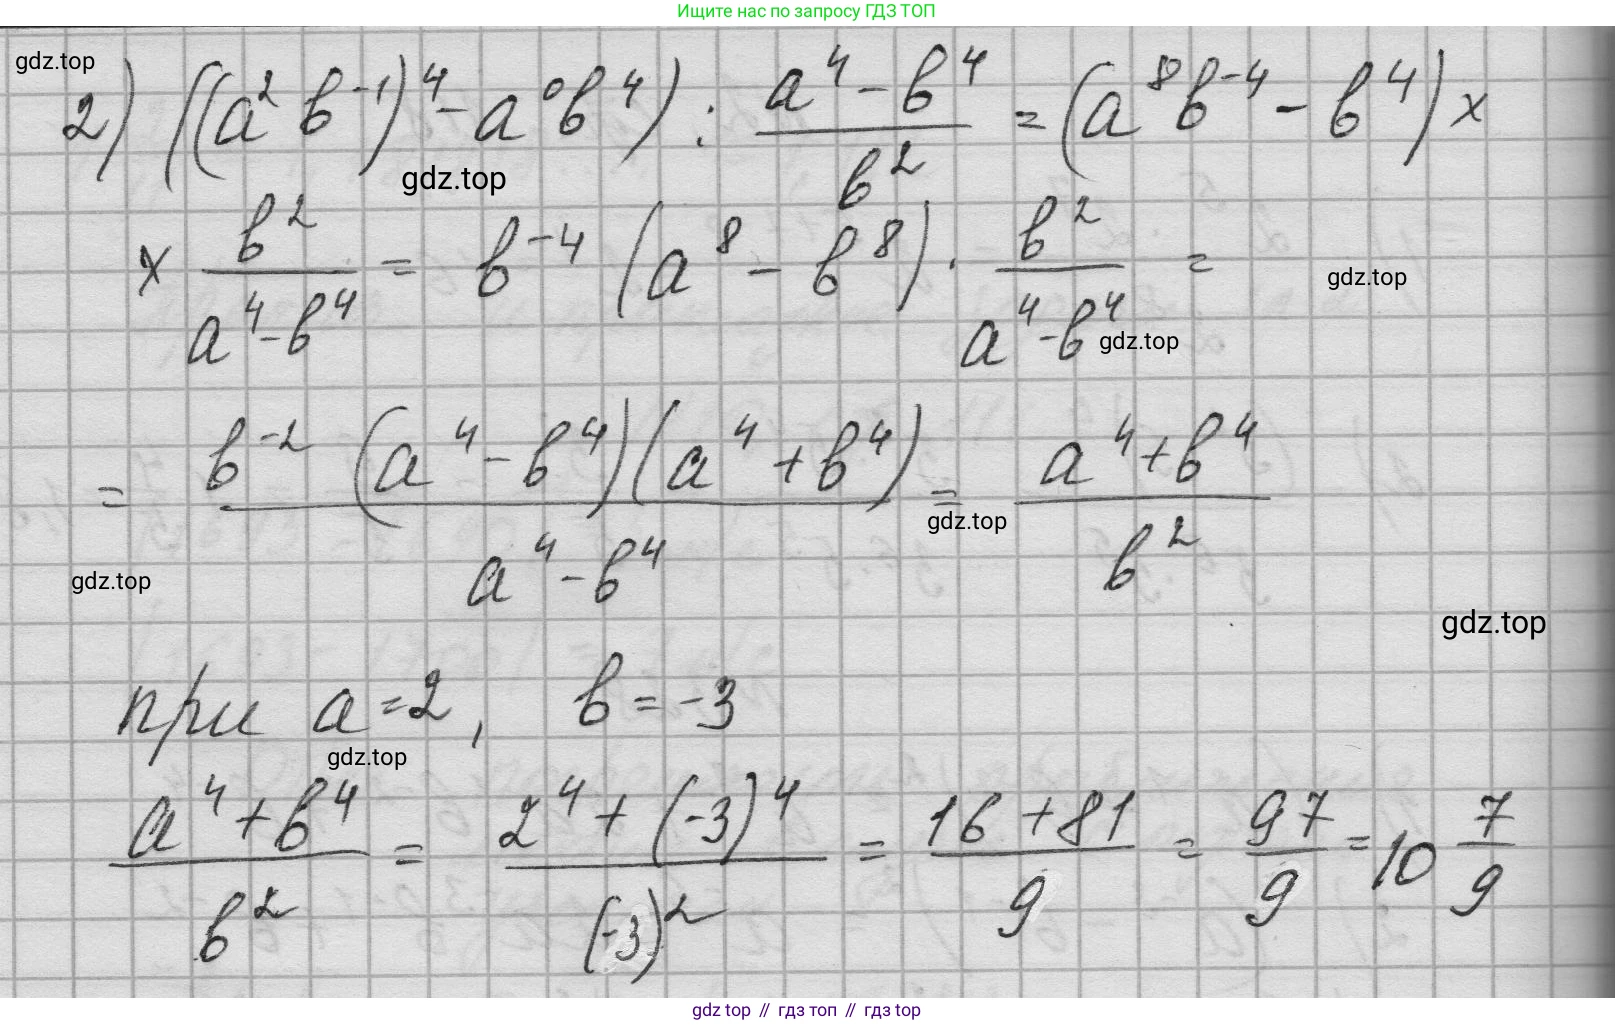 Ищите нас по запросу ГДЗ ТОП
gdz.top
2) ((a² b⁻¹)⁴ - a⁰b⁴) : (a⁴ - b⁴)/b² = (a⁸b⁻⁴ - b⁴) ×
gdz.top
× b²/(a⁴-b⁴) = b⁻⁴ (a⁸ - b⁸) · b²/(a⁴-b⁴) =
gdz.top
gdz.top
= b⁻² (a⁴ - b⁴)(a⁴ + b⁴)/(a⁴ - b⁴) = (a⁴ + b⁴)/b²
gdz.top
gdz.top
gdz.top
при a = 2, b = -3
gdz.top
(a⁴ + b⁴)/b² = (2⁴ + (-3)⁴)/(-3)² = (16 + 81)/9 = 97/9 = 10 7/9
gdz top // гдз топ // gdz top